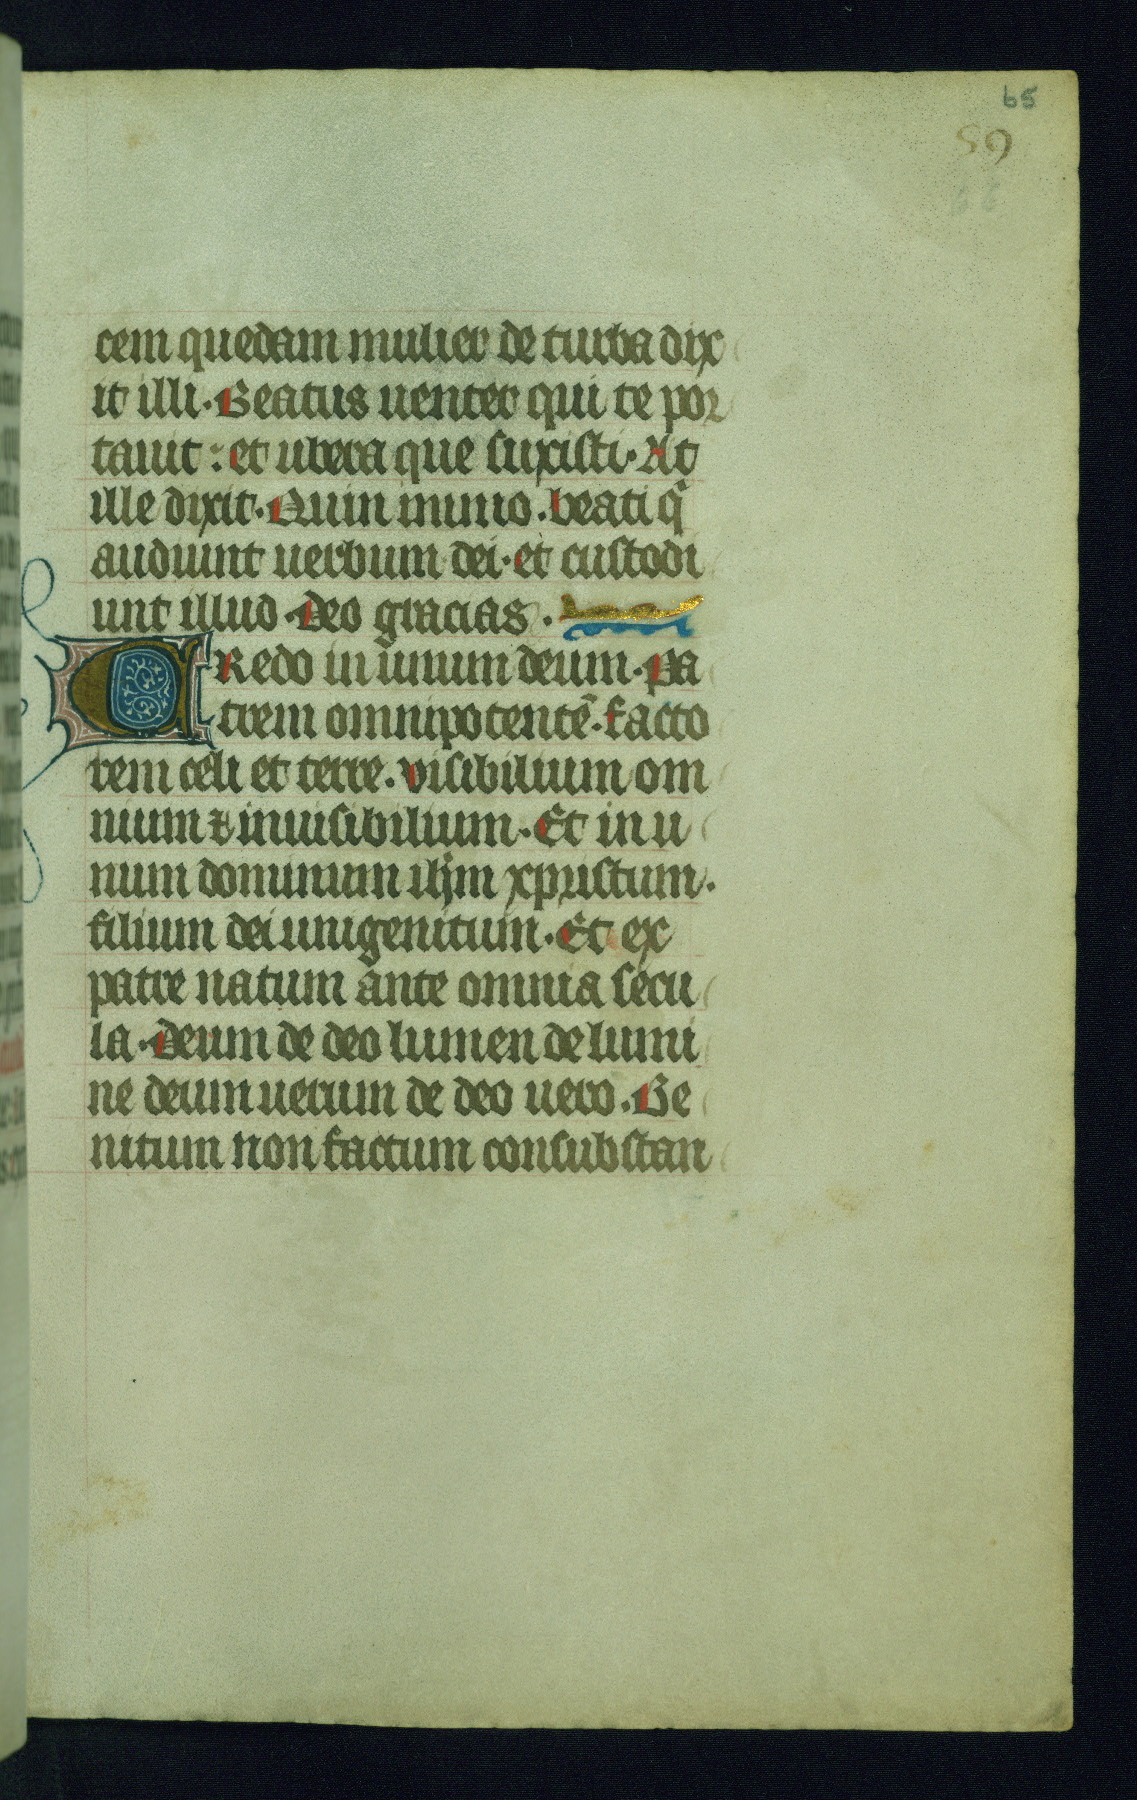 65
59
66
cem quedam mulier de turba dix
it illi. Beatus uenter qui te por
tauit: et ubera que suxisti. At
ille dixit. Quin inmo. beati qi
audiunt uerbum dei. et custodi
unt illud. Deo gracias.
CRedo in unum deum. Pa
trem omnipotentē. facto
rem celi et terre. visibilium om
nium ⁊ inuisibilium. Et in u
num dominum ihm xpristum.
filium dei unigenitum. Et ex
patre natum ante omnia secu
la. Deum de deo lumen de lumi
ne deum uerum de deo uero. Ge
nitum non factum consubstan